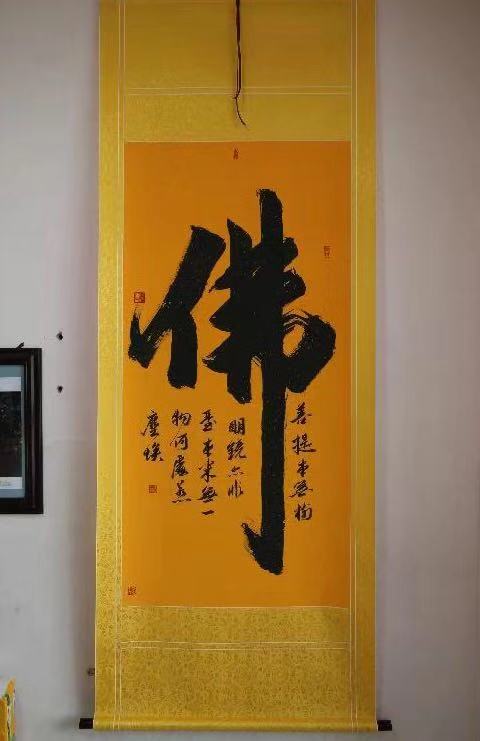 佛
菩提本無樹
明鏡亦非
臺本來無一
物何處惹
塵埃